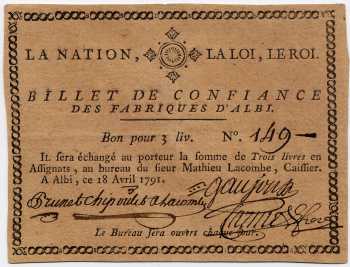 LA NATION, LA LOI, LE ROI.
BILLET DE CONFIANCE
DES FABRIQUES D'ALBI.
Bon pour 3 liv. N°. 149
Il sera échangé au porteur la somme de Trois livres en
Assignats, au bureau du sieur Mathieu Lacombe, Caissier.
A Albi, ce 18 Avril 1791.
Le Bureau sera ouvert chaque jour.